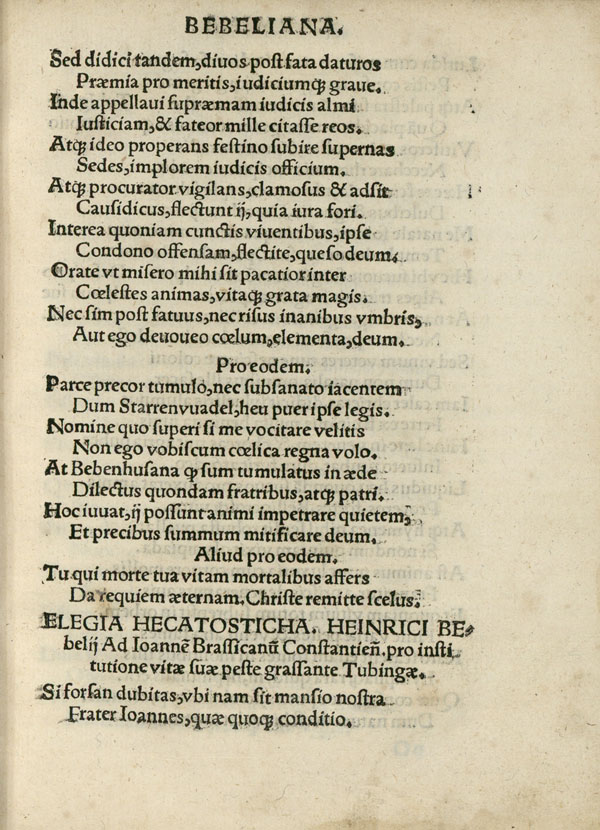 BEBELIANA.
Sed didici tandem, diuos post fata daturos
Præmia pro meritis, iudiciumqꝫ graue.
Inde appellaui supræmam iudicis almi
Iusticiam, & fateor mille citasse reos.
Atqꝫ ideo properans festino subire supernas
Sedes, implorem iudicis officium.
Atqꝫ procurator vigilans, clamosus & adsit
Causidicus, flectunt ij, quia iura fori.
Interea quoniam cunctis viuentibus, ipse
Condono offensam, flectite, queso deum.
Orate vt misero mihi sit pacatior inter
Cœlestes animas, vitaqꝫ grata magis.
Nec sim post fatuus, nec risus inanibus vmbris,
Aut ego deuoueo cœlum, elementa, deum.
Pro eodem.
Parce precor tumulo, nec subsanato iacentem
Dum Starrenvuadel, heu puer ipse legis.
Nomine quo superi si me vocitare velitis
Non ego vobiscum cœlica regna volo.
At Bebenhusana ꝙ sum tumulatus in æde
Dilectus quondam fratribus, atqꝫ patri.
Hoc iuuat, ij possunt animi impetrare quietem,
Et precibus summum mitificare deum.
Aliud pro eodem.
Tu qui morte tua vitam mortalibus affers
Da requiem æternam. Christe remitte scelus.
ELEGIA HECATOSTICHA. HEINRICI BE-
belij Ad Ioannē Brassicanū Constantieñ. pro insti
tutione vitæ suæ peste grassante Tubingæ.
Si forsan dubitas, vbi nam sit mansio nostra
Frater Ioannes, quæ quoqꝫ conditio.